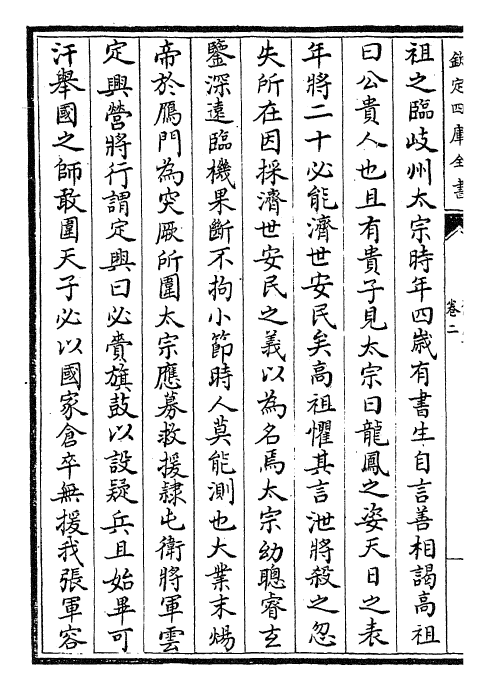 欽定四庫全書
卷二
祖之臨岐州太宗時年四歲有書生自言善相謁高祖
曰公貴人也且有貴子見太宗曰龍鳳之姿天日之表
年將二十必能濟世安民矣高祖懼其言泄將殺之忽
失所在因採濟世安民之義以為名焉太宗幼聰睿玄
鑒深遠臨機果斷不拘小節時人莫能測也大業末煬
帝於鴈門為突厥所圍太宗應募救援隷屯衛將軍雲
定興營將行謂定興曰必賫旗鼓以設疑兵且始畢可
汗舉國之師敢圍天子必以國家倉卒無援我張軍容